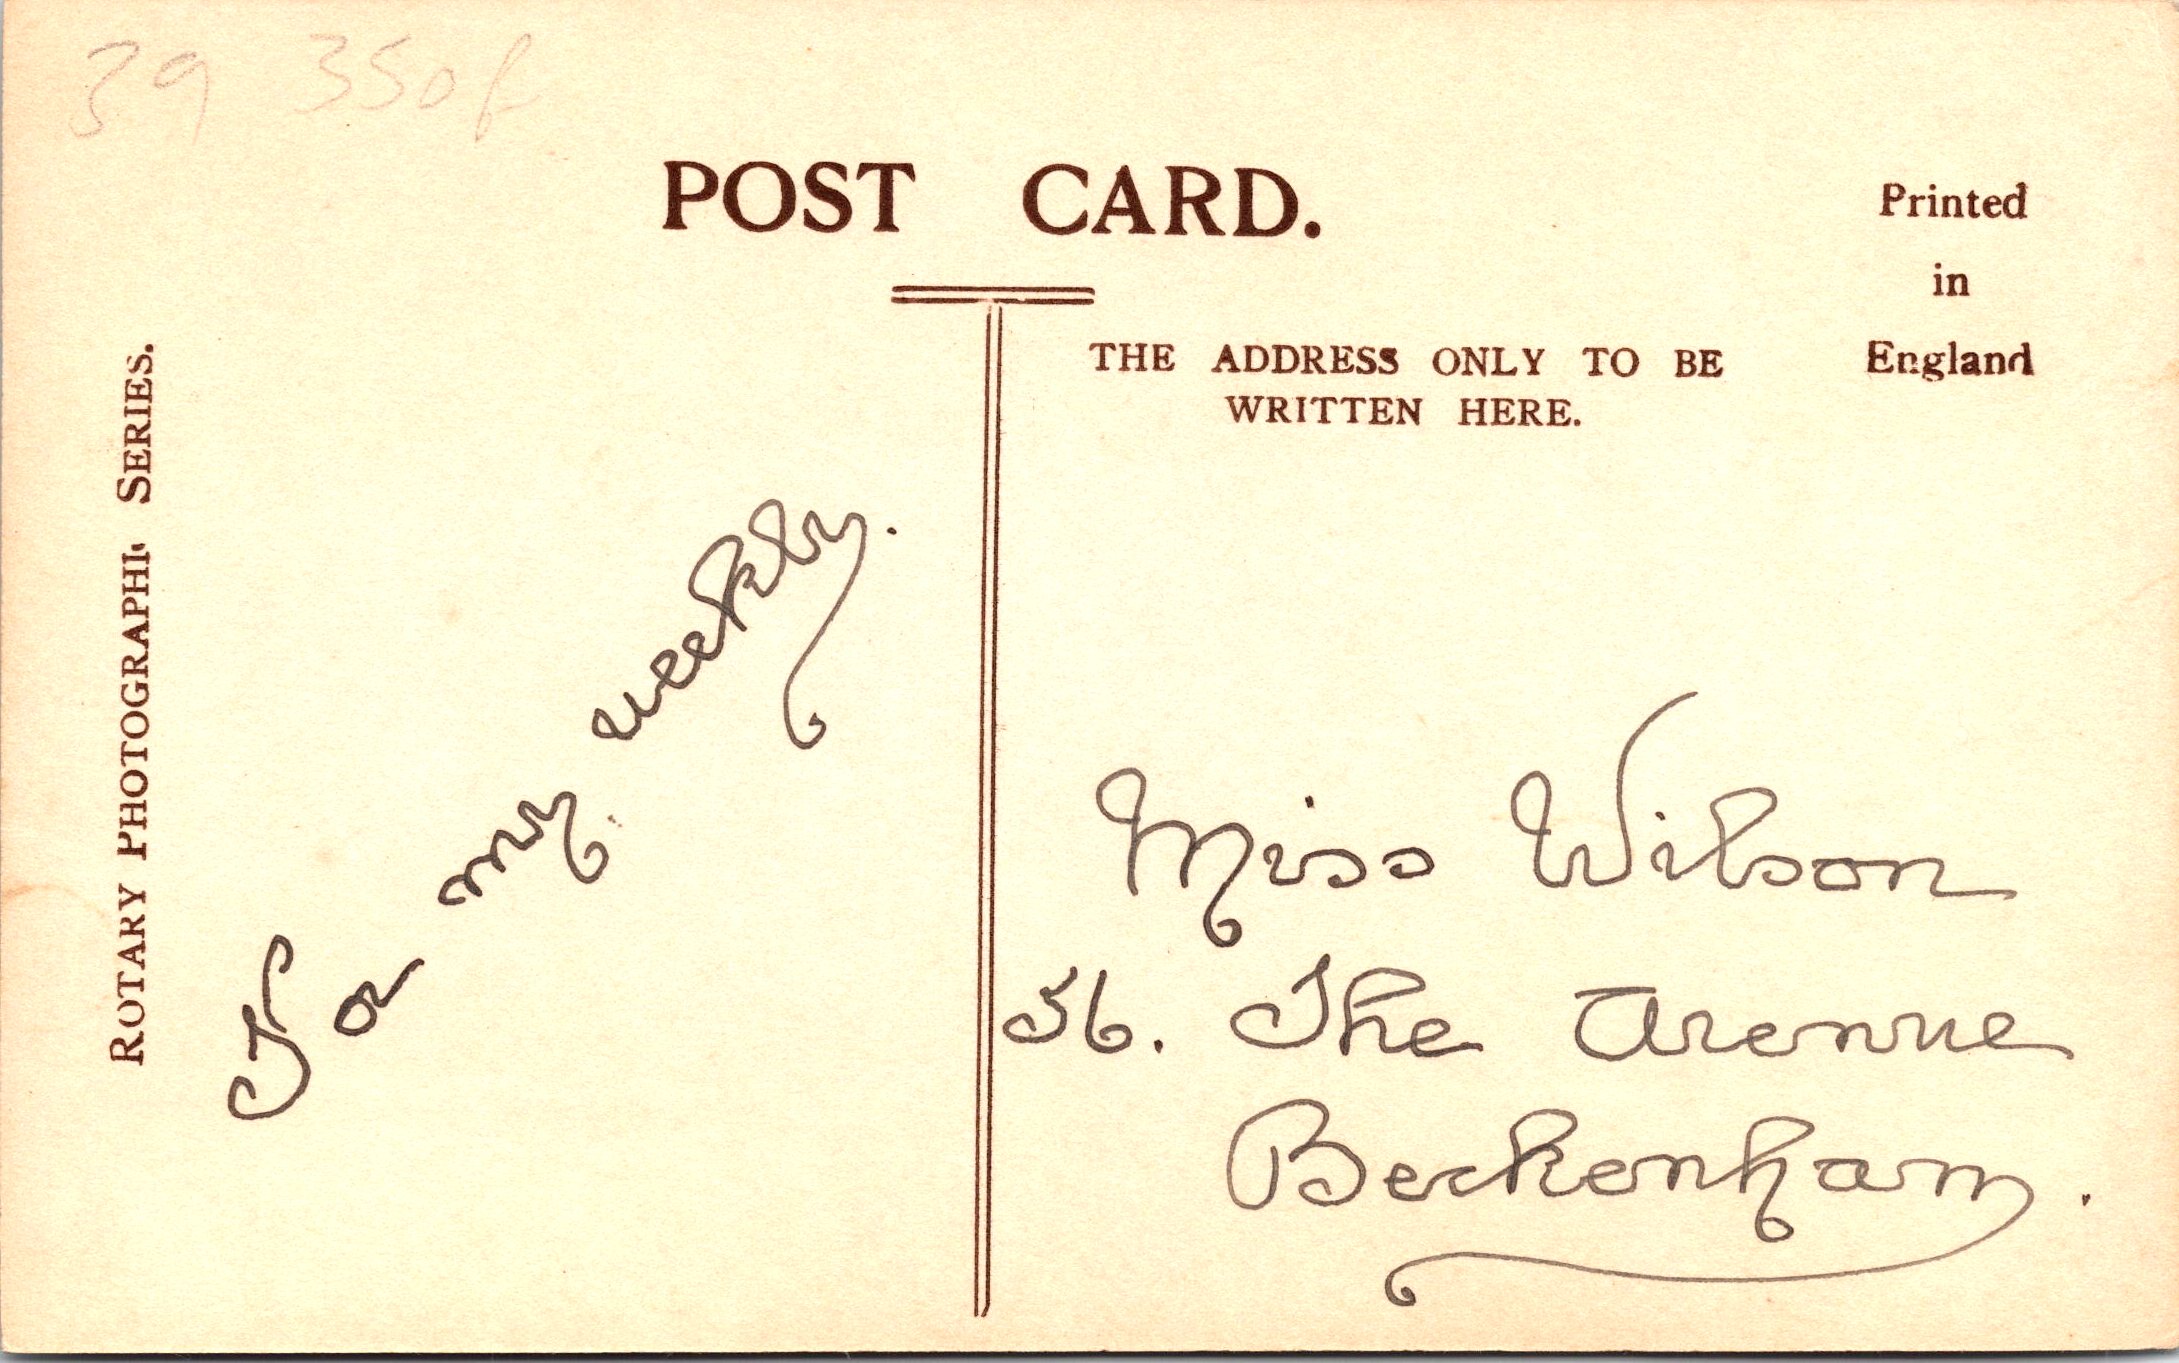 39 350f
POST CARD.
Printed
in
England
THE ADDRESS ONLY TO BE
WRITTEN HERE.
ROTARY PHOTOGRAPHIC SERIES.
For my weekly.
Miss Wilson
56. The Avenue
Beckenham.